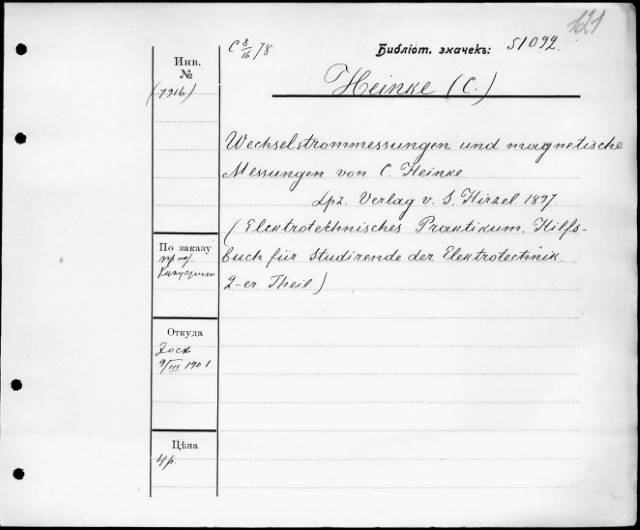 121
C 8/16 /8
Библіот. значекъ: 51092.
Инв.
№
(7916)
Heinke (C.)
Wechselstrommessungen und magnetische
Messungen von C. Heinke
Lpz. Verlag v. S. Hirzel 1897
(Elektrotechnisches Praktikum. Hilfs-
buch für Studirende der Elektrotechnik.
2-er Theil)
По заказу
проф.
Откуда
9/III 1901
Цѣна
4р.